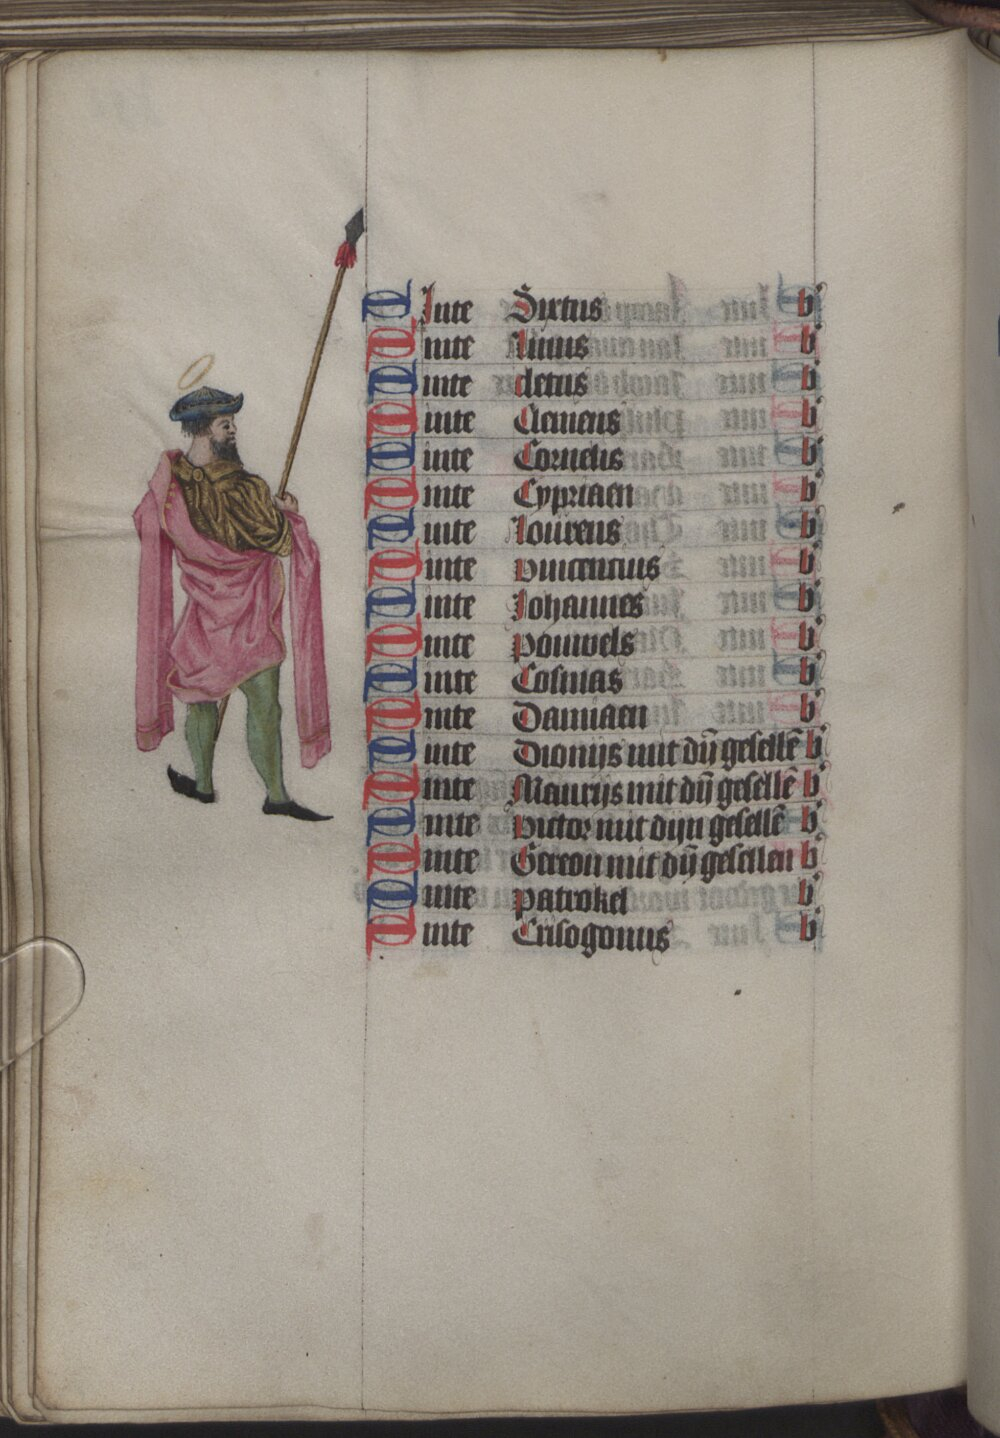 SJnte Sixtus b'
Sinte linus b'
Sinte cletus b'
Sinte Clemens b'
Sinte Cornelis b'
Sinte Cypriaen b'
Sinte lourens b'
Sinte vincencius b'
Sinte Johannes b'
Sinte pauwels b'
Sinte Cosmas b'
Sinte Damiaen b'
Sinte Dionijs mit dijn̄ gesellē b'
Sinte Maurijs mit dijn̄ gesellē b'
Sinte victor mit dijn gesellē b'
Sinte Gereon mit dijn̄ gesellen b'
Sinte patrokel b'
Sinte Crisogonus b'